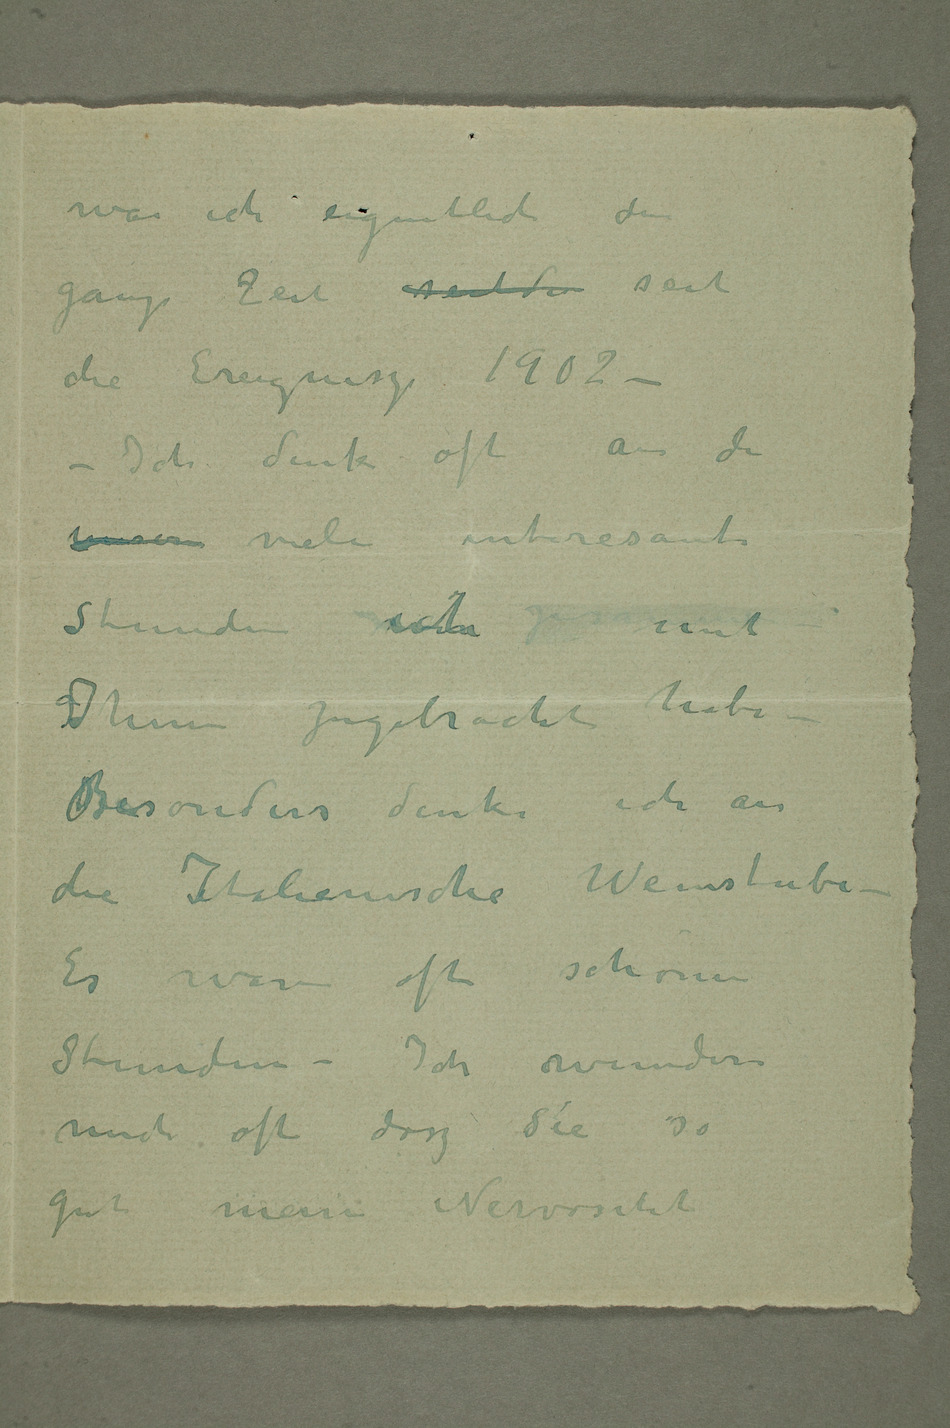 war ich eigentlich die
ganze Zeit seit den seit
die Ereignisze 1902 –
– Ich denke oft an die
unsere viele interesante
Stunden ich mit
Ihnen zugebracht habe –
Besonders denke ich an
die Italienische Weinstube –
Es waren oft schöne
Stunden – Ich wundere
mich oft dasz Sie so
gut meine Nervositet